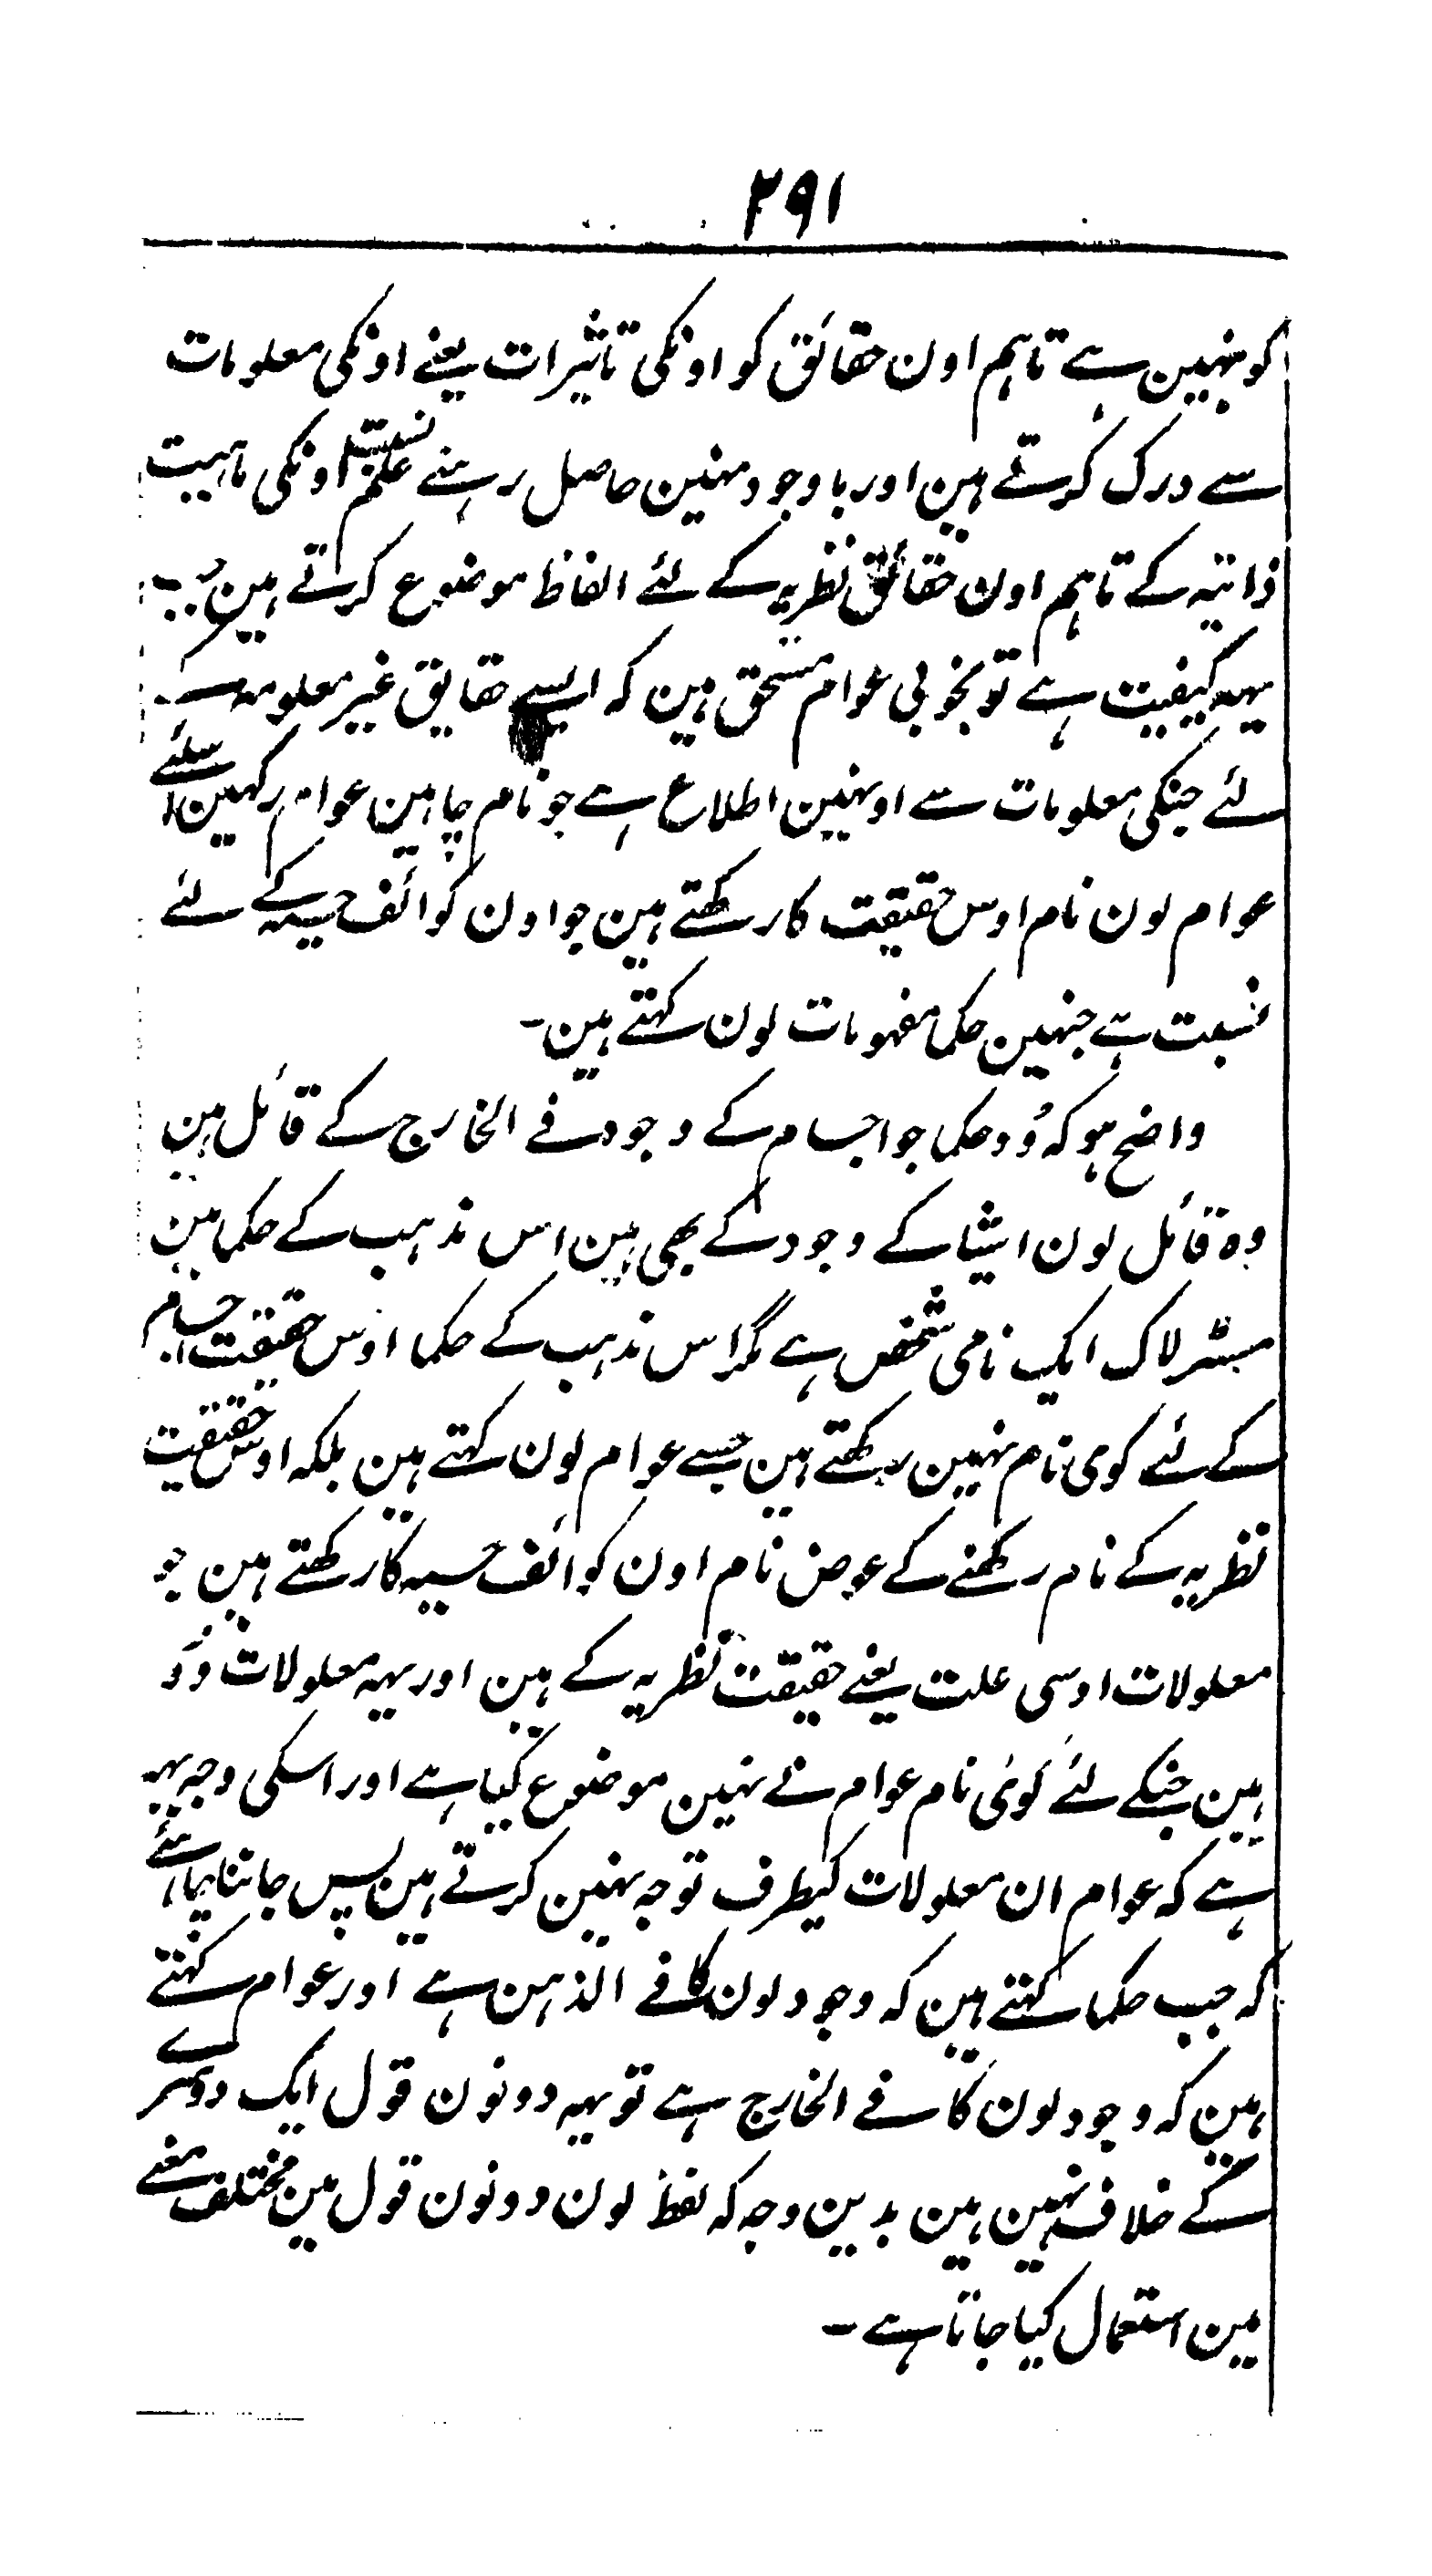 ۲۹۱
کو نہین ہے تاہم اون حقائق کو اونکی تاثیرات یعنے اونکی معلومات
سے درک کرتے ہین اور باوجود نہین حاصل رہنے علم نسبت اونکی ماہیت
ذاتیہ کے تاہم اون حقائق نظریہ کے لئے الفاظ موضوع کرتے ہین جب
یہہ کیفیت ہے تو بخوبی عوام مستحق ہین کہ ایسے حقایق غیر معلومہ کے
لئے جنکی معلومات سے اونہین اطلاع ہے جو نام چاہین عوام رکہین اسلئے
عوام لون نام اوس حقیقت کا رکھتے ہین جو اون کوائف حسیہ کے لئے
نسبت ہے جنہین حکما مفہومات لون کہتے ہین۔
واضح ہو کہ وُہ حکما جو اجسام کے وجود فے الخارج کے قائل ہین
وہ قائل لون اشیا کے وجود کے بھی ہین اس مذہب کے حکما مین
مسٹر لاک ایک نامی شخص ہے مگر اس مذہب کے حکما اوس حقیقت اجسام
کے لئے کوی نام نہین رکھتے ہین جسے عوام لون کہتے ہین بلکہ اوس حقیقت
نظریہ کے نام رکھنے کے عوض نام اون کوائف حسیہ کا رکھتے ہین جو
معلولات اوسی علت یعنے حقیقت نظریہ کے ہین اور یہہ معلولات وُہ
ہین جنکے لئے کوئی نام عوام نے نہین موضوع کیا ہے اور اسکی وجہ یہہ
ہے کہ عوام ان معلولات کیطرف توجہ نہین کرتے ہین پس جاننا چاہئے
کہ جب حکما کہتے ہین کہ وجود لون کا فے الذہن ہے اور عوام کہتے
ہین کہ وجود لون کا فے الخارج ہے تو یہہ دونون قول ایک دوسرے
کے خلاف نہین ہین بدین وجہ کہ لفظ لون دونون قول مین مختلف معنے
مین استعمال کیا جاتا ہے۔